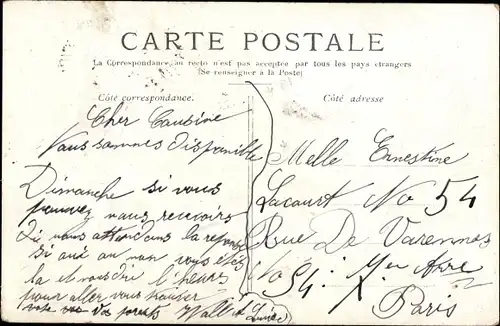 CARTE POSTALE
La Correspondance au recto n'est pas acceptée par tous les pays étrangers
(Se renseigner à la Poste)
Côté correspondance.
Côté adresse
Cher Cousine
Vous sommes disponible
Dimanche si vous
pouvez nous recevoirs
nous attendons la reponse
si oui au non vous
la et l'heure
pour aller vous trouver
vos parents
Melle Ernestine
Lacourt No 54
Rue De Varennes
No 54.
Paris